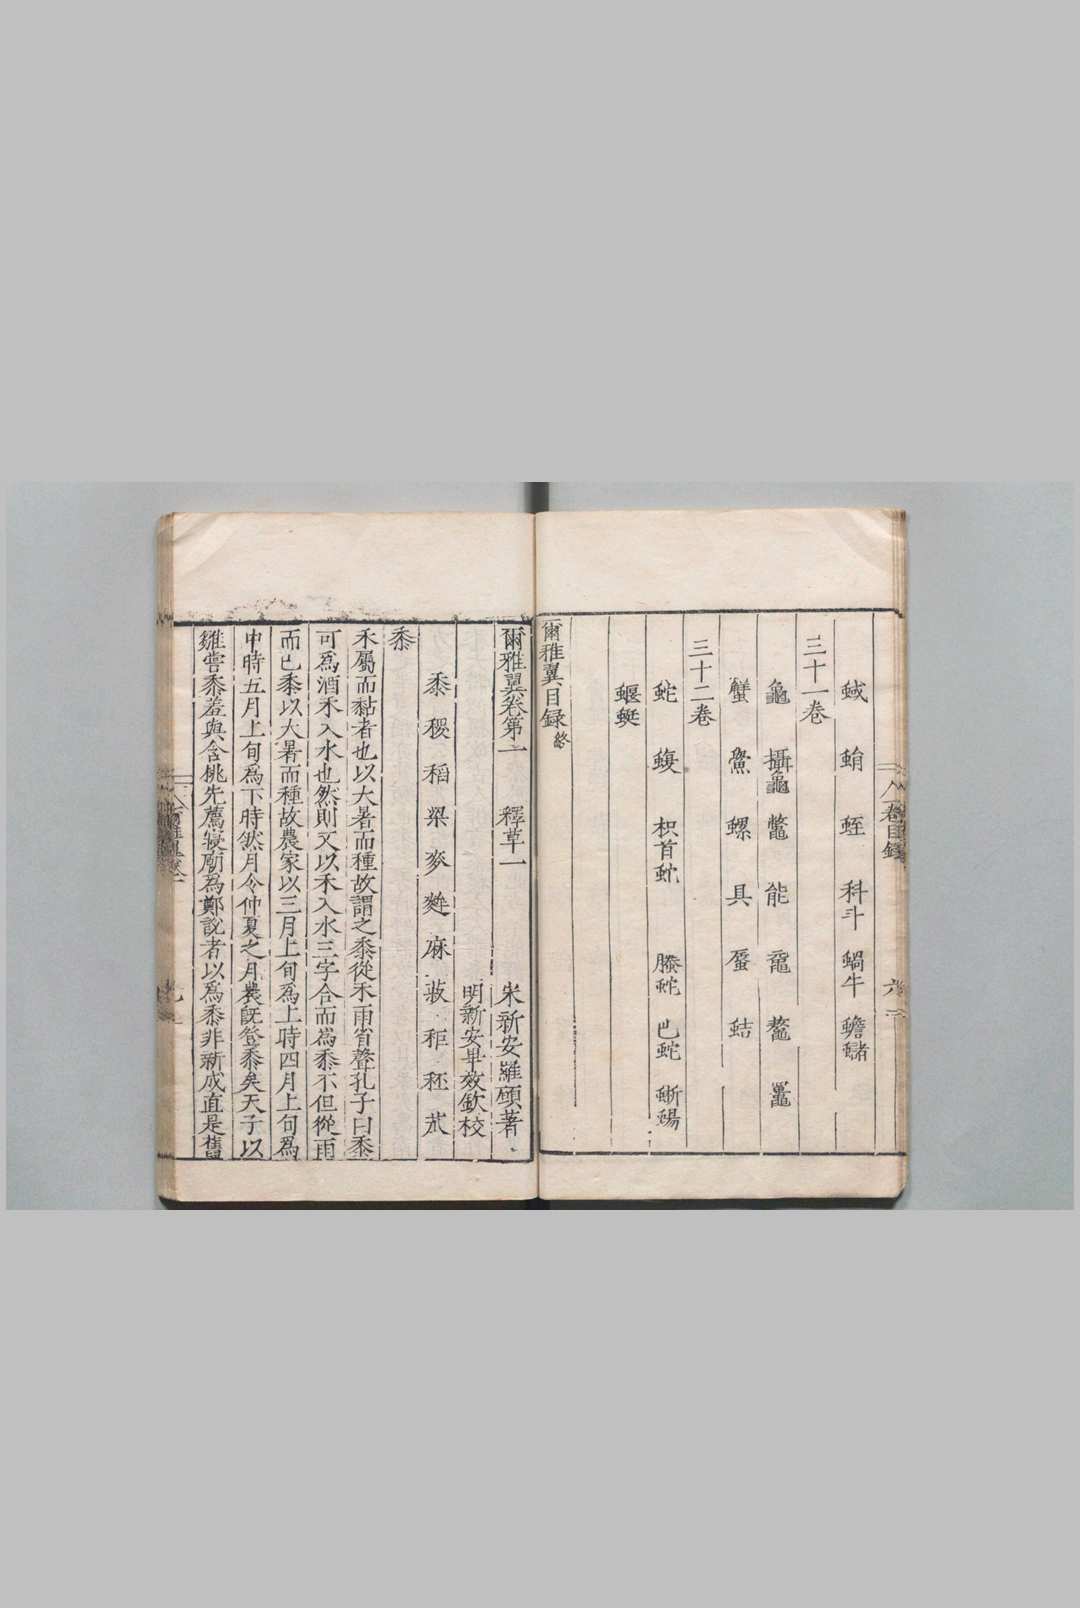 蜮 蛕 蛭 科斗 蝸牛 蟾蠩
三十一卷
龜 攝龜 鼈 能 黿 鼇 鼉
蟹 鱟 螺 貝 蜃 蛣
三十二卷
蛇 蝮 枳首蛇 螣蛇 巴蛇 蜥蜴
蝘蜓
爾雅翼目録終
爾雅翼卷第一 釋草一 宋新安羅願著
明新安畢效欽校
黍 稷 稻 粱 麥 麰 麻 菽 秬 秠 荒
黍
禾屬而黏者也以大暑而種故謂之黍從禾雨省聲孔子曰黍
可爲酒禾入水也然則又以禾入水三字合而爲黍不但從雨
而已黍以大暑而種故農家以三月上旬爲上時四月上旬爲
中時五月上旬爲下時然月令仲夏之月農旣登黍矣天子以
雛嘗黍羞與含桃先薦寢廟爲鄭說者以爲黍非新成直是舊
卷目録